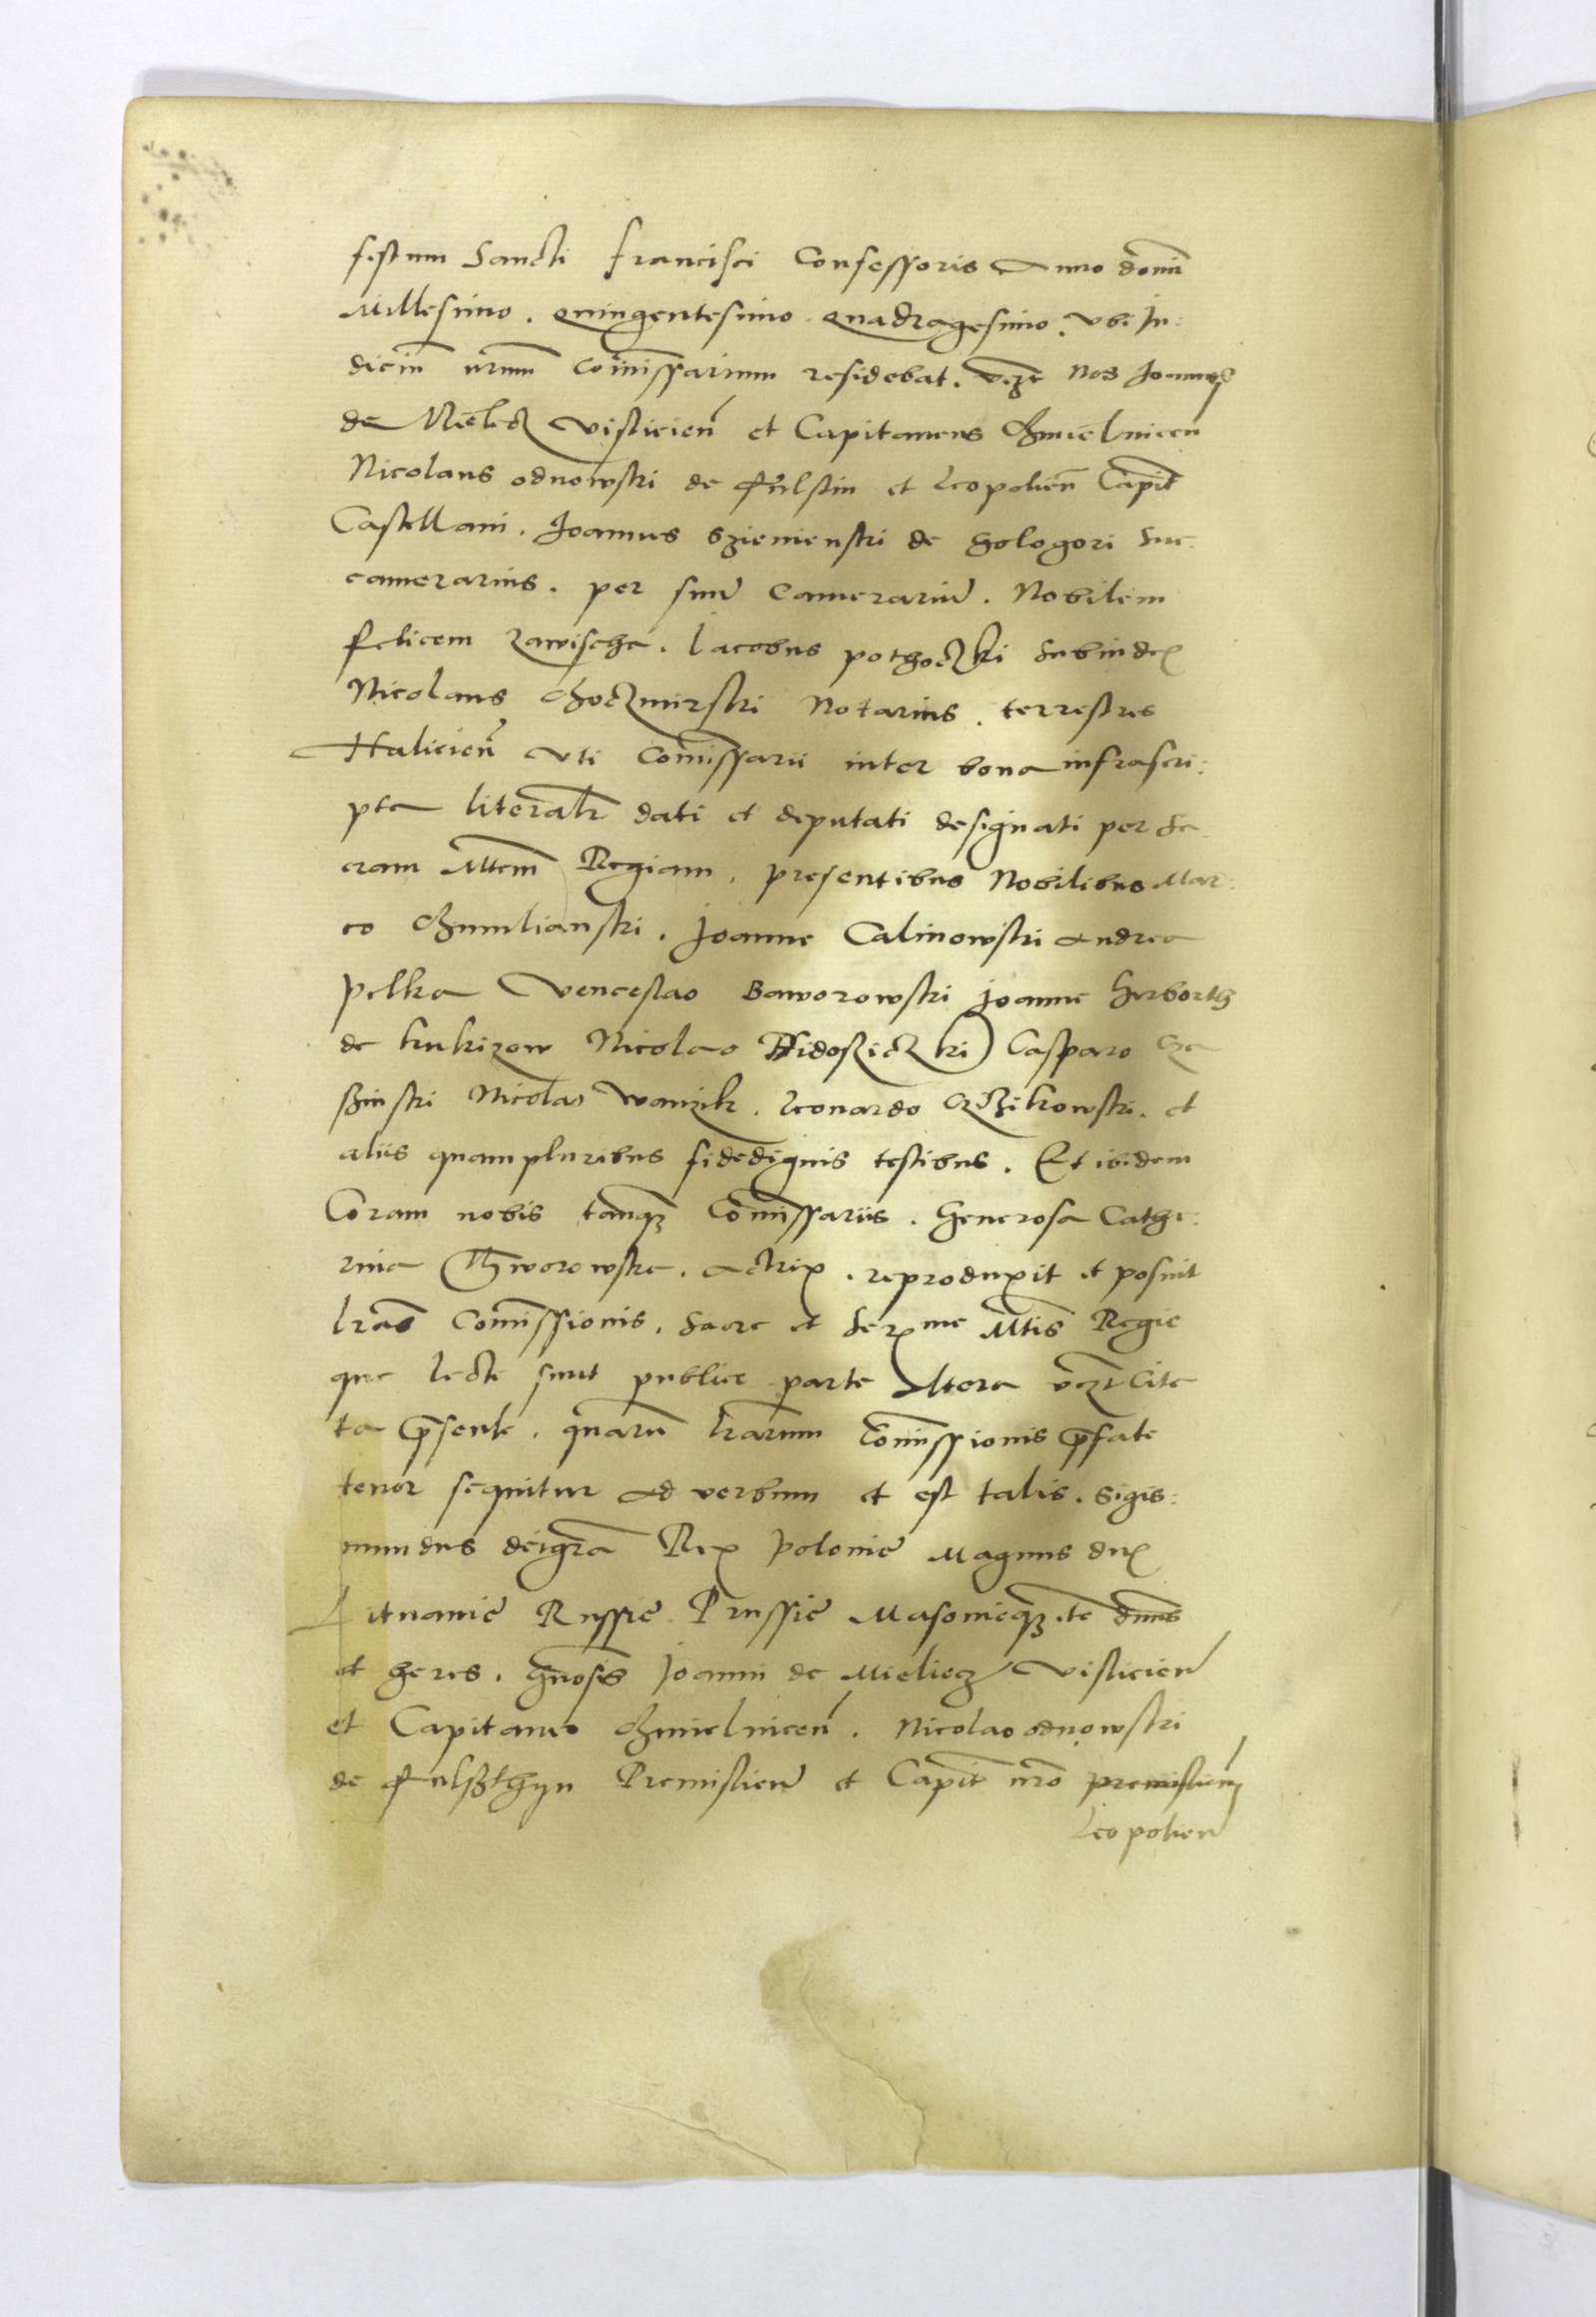 festum Sancti francisci Confessoris Anno domī
Millesimo. quingentesimo quadragesimo. vbi Ju:
diciū nrum com̄issarium residebat. vzt Nos Joannes
de Mielecz Visliciēn et Capitaneus Chmielnicen
Nicolaus odnowski de fulstin et Leopoliēn Capit̄
Castellani. Joannes Szienienski de Gologori Suc
camerarius. per suū Camerariū. Nobilem
felicem zawische. Jacobus pothoczki Subiudex
Nicolaus Choczimirski Notarius. terrestres
Haliciēn Vti Com̄issarii inter bona infrascri:
pta literalr dati et deputati designati per Sa
cram Mtem Regiam. presentibus Nobilibus Mar:
co Chumlianski. Joanne Calinowski Andrea
pelka Venceslao Baworowski Joanne Herborth
de kukizow Nicolao Caspara Cza
sinski Nicolao Wanzik. Leonardo et
aliis quampluribus fidedignis testibus. Et ibidem
Coram nobis tanq̄ Com̄issariis. Generosa Cathe:
rina Thworowska. actrix. reproduxit et posuit
lras Com̄issionis. Sacre et Serxme Mtis Regie
que lecte sunt publice parte altera vzt Cita
ta p̄sente. quarū lrarum Com̄issionis p̄fate
tenor sequitur ad verbum et est talis. Sigis:
mundus deigr̄a Rex polonie Magnus dux
Lituanie Russie Prussie Masouieq̄ etc dn̄s
et heres. Gn̄osis Joanni de Mieliecz Visliciēn
et Capitaneo Chmielnicēn. Nicolao odnowski
de fulszthyn Premisliēn et Capit̄ nr̄o premisliēn
Leopoliēn